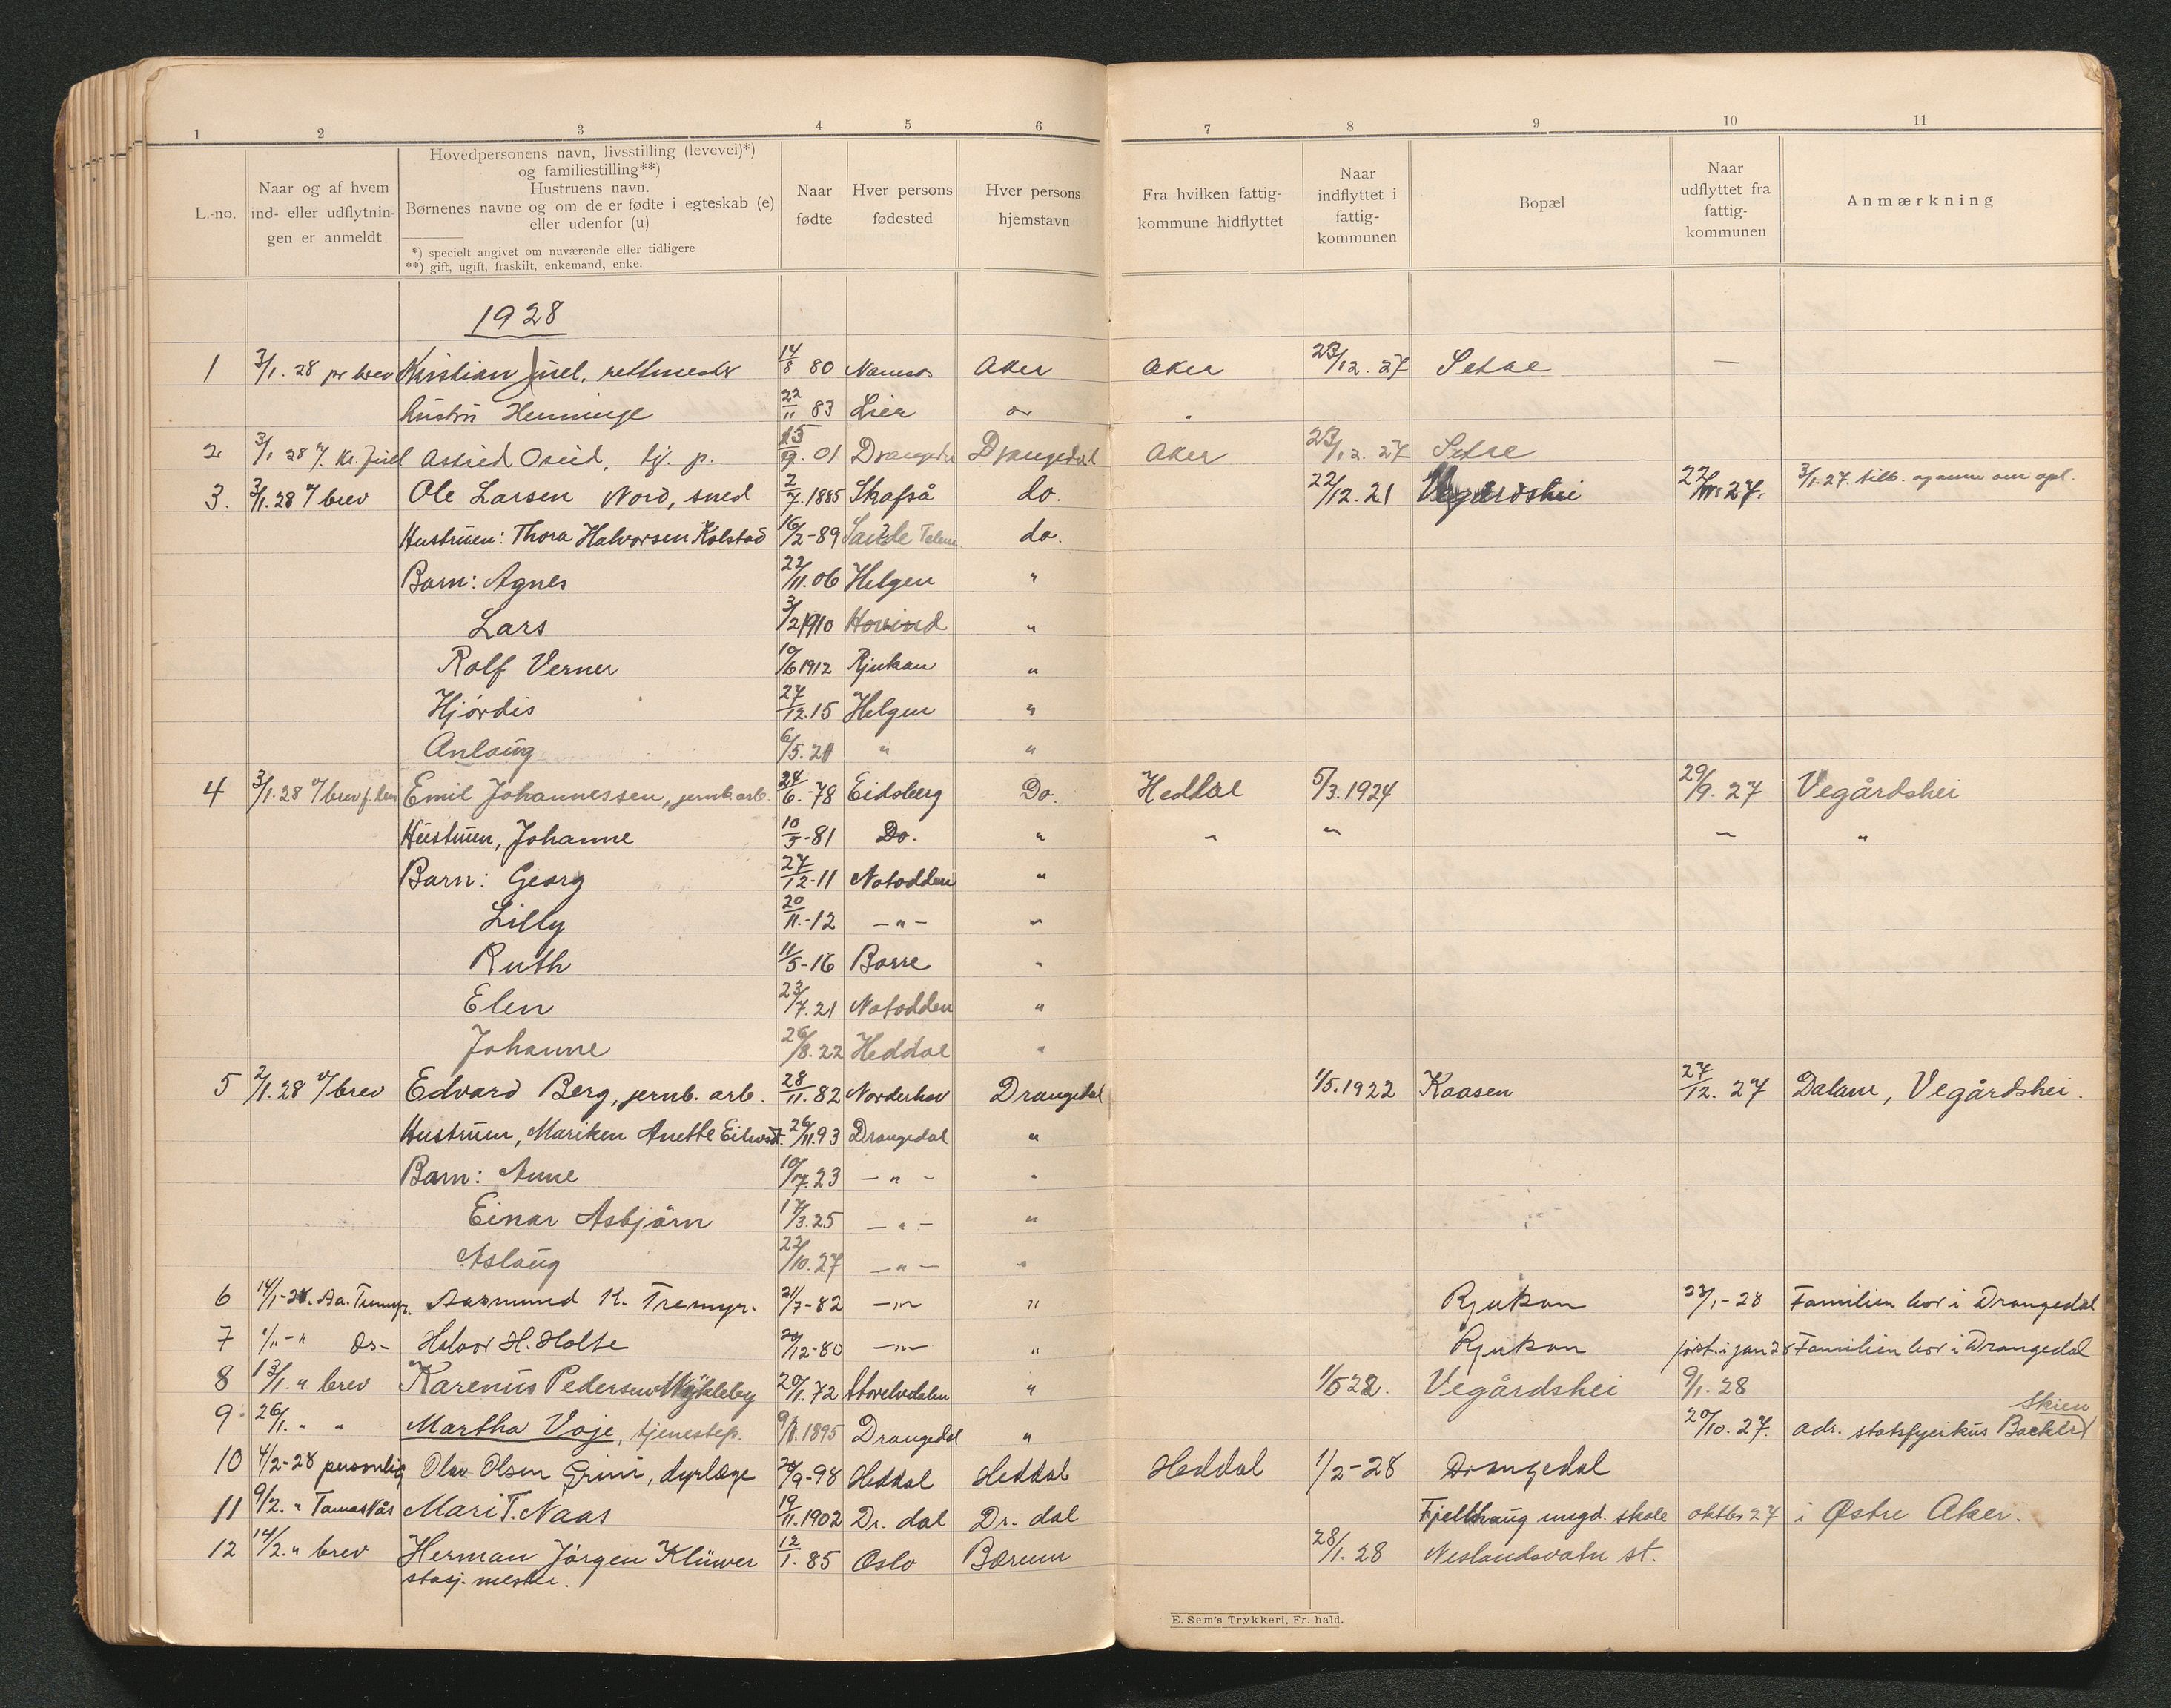 1 2 3 4 5 6 7 8 9 10 11
L.-no.
Naar og af hvem
ind- eller udflytnin-
gen er anmeldt
Hovedpersonens navn, livsstilling (levevei)*)
og familiestilling**)
Hustruens navn.
Børnenes navne og om de er fødte i egteskab (e)
eller udenfor (u)
*) specielt angivet om nuværende eller tidligere
**) gift, ugift, fraskilt, enkemand, enke.
Naar
fødte
Hver persons
fødested
Hver persons
hjemstavn
Fra hvilken fattig-
kommune hidflyttet
Naar
indflyttet i
fattig-
kommunen
Bopæl
Naar
udflyttet fra
fattig-
kommunen
Anmærkning
1928
1 3/1. 28 pr brev Kristian Juel, 14/8 80 Namsos Aker Aker 23/12. 27 —
Hustru Henninge 22/11 83 Lier "
2 3/1 28 v/. Kr. Juel Astrid Oseid, tj. p. 15/9. 01 Drangedal Drangedal Aker 23/12. 27
3. 3/1. 28 v/ brev Ole Larsen Nord, sned 2/7. 1885 Skafså do. 22/12. 21 Vegårdshei 27. 3/1-27. om opl.
Hustruen: Thora Halvorsen Kolstad 16/2-89 do.
Barn: Agnes 22/11. 06 Helgen "
Lars 3/2 1910 Hovind "
Rolf Verner 10/6 1912 Rjukan "
Hjórdis 27/12. 15 Helgen "
Anlaug 6/5. " "
4 3/1. 28 v/ brev f. Emil Johannessen, jernb. arb. 24/6.-78 Eidsberg Do. Heddal 5/3. 1924 29/9. 27 Vegårdshei
Hustruen, Johanne 10/5-81 Do. " " " " "
Barn: Georg 27/12-11 Notodden "
Lilly 20/11.-12 — " — "
Ruth 11/5-16 Borre "
Elen 23/7. 21 Notodden "
Johanne 26/8. 22 Heddal "
5 2/1. 28 v/ brev Edvard Berg, jernb. arb. 28/11. 82 Norderhov Drangedal 1/5. 1922 Kaasen 27/12. 27 Dalane, Vegårdshei.
Hustruen, Mariken Anette Eilevsd. 26/11. 93 Drangedal "
Barn: Anne 10/7. 23 — " — "
Einar Asbjörn 17/3. 25 — " — "
Aslaug 22/10. 27 — " — "
6 14/1-28. Aa. Tremyr. Aasmund K. Tremyr. 21/7-82 — " — " Rjukan 23/1-28 Familien bor i Drangedal
7 "/"-" do- Halvor H. Holte 20/12-80 — " — " Rjukan först. i jan 28 Familien bor i Drangedal
8 13/1. " brev Karenus Pedersen 20/1. 72 Storelvdalen " 1/5 22. Vegårdshei 9/1. 28
9 26/1. " " Martha Voje, tjenestep. 1895 Drangedal " 20/10. 27. adr. statsfysikus Backer Skien
10 4/2-28 personlig Olav Olsen Grini, dyrlæge 20/9-98 Heddal Heddal Heddal 1/2-28 Drangedal
11 9/2. " Tomas Nås Mari T. Naas 19/11. 1902 Dr. dal Dr. dal Fjellhaug ungd. skole oktbr 27 i Østre Aker.
12 14/2. " brev Herman Jörgen Klüwer 12/1. 85 Oslo Bærum 28/1. 28 Neslandsvatn st.
stasj. mester.
E. Sem's Trykkeri, Fr. hald.